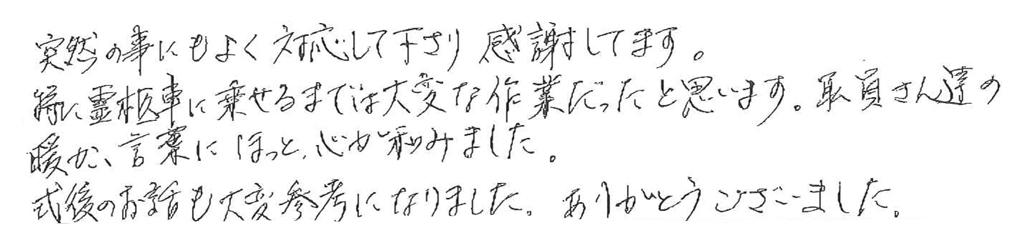 突然の事にもよく対応して下さり感謝してます。
特に霊柩車に乗せるまでは大変な作業だったと思います。職員さん達の
暖かい言葉にほっと、心が和みました。
式後のお話も大変参考になりました。ありがとうございました。